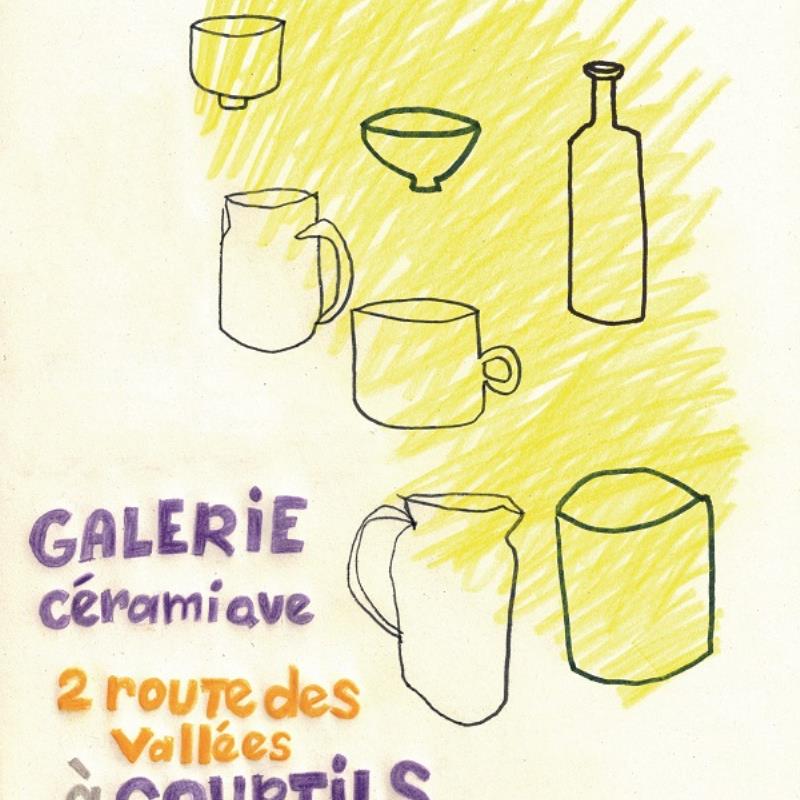 GALERiE
céramique
2 route des
Vallées
à COURTiLS